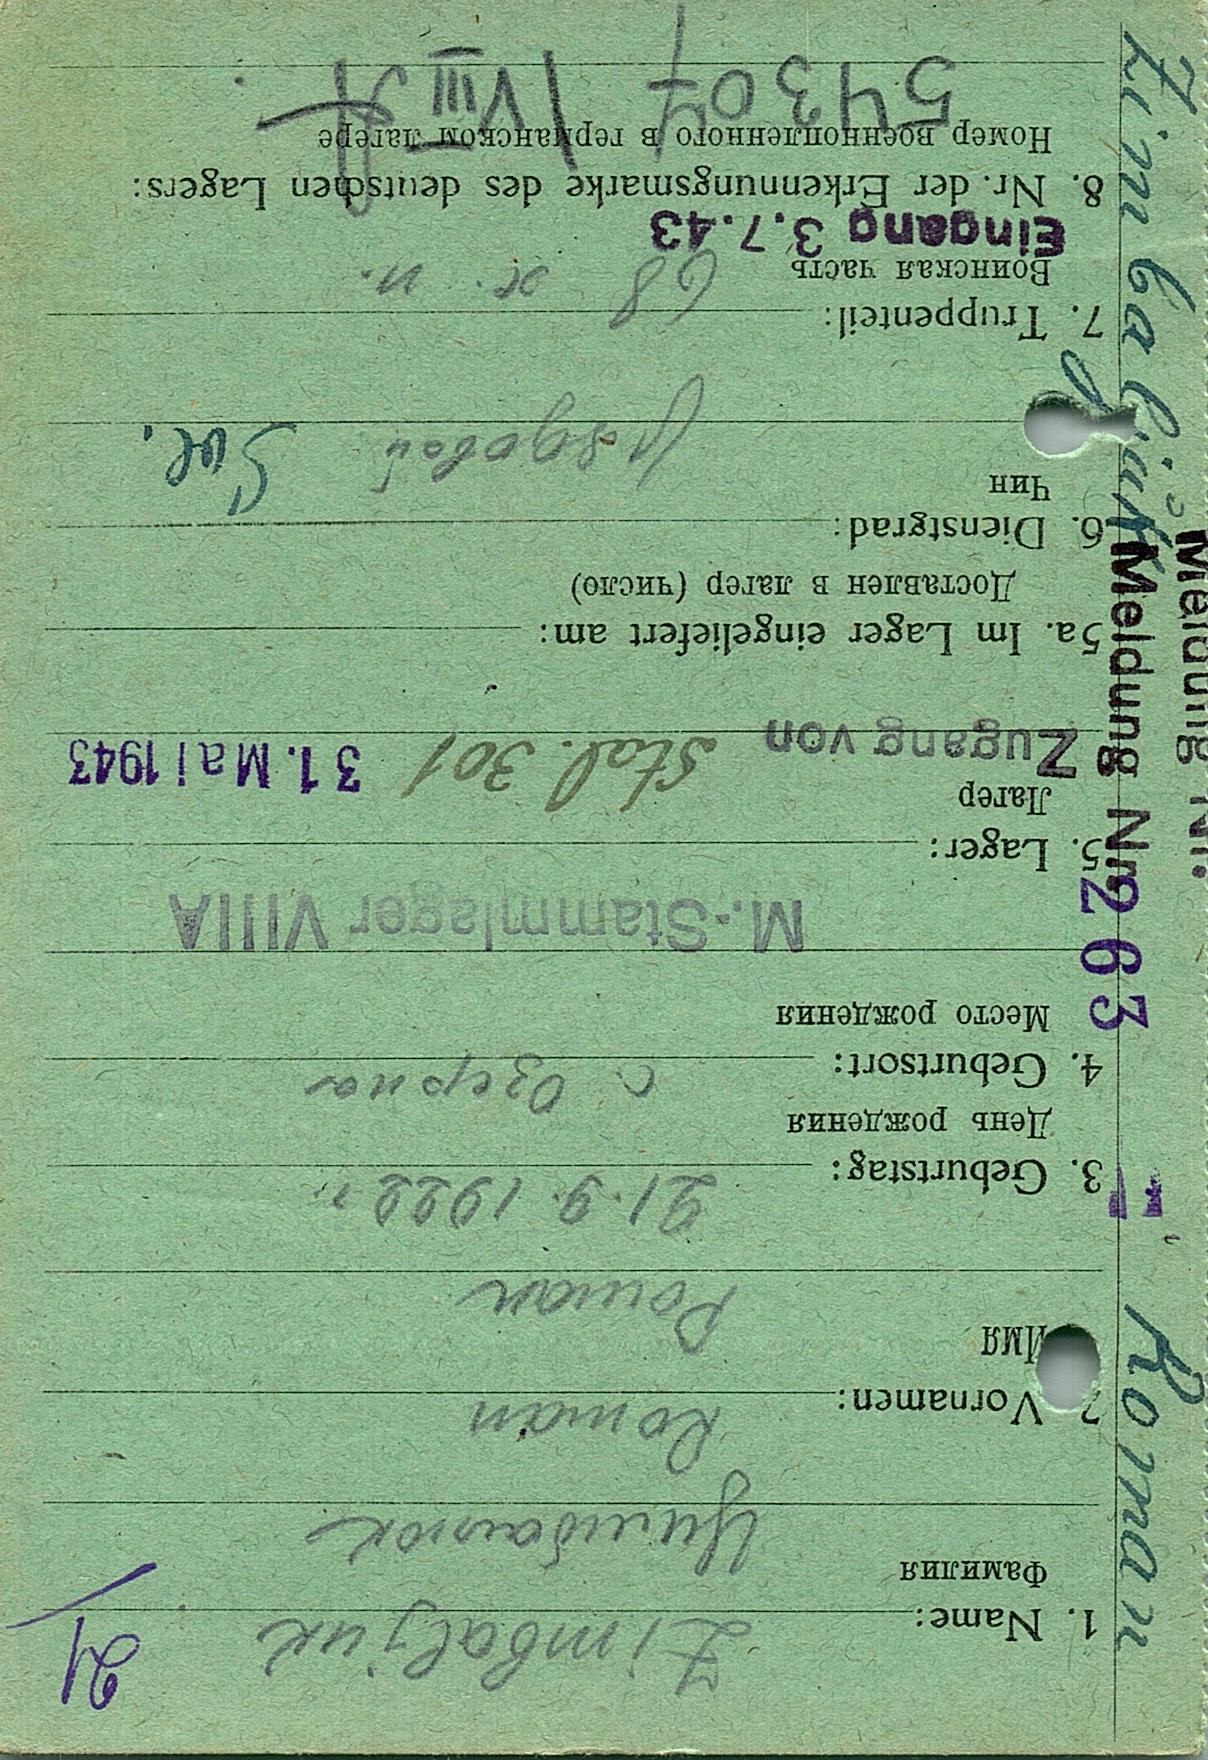 21
1. Name: Zimbaljuk
Фамилия Цимбалюк
2. Vornamen: Roman
Имя Роман
3. Geburtstag: 21.9.1922 г.
День рождения
4. Geburtsort: с Озерна
Место рождения
M.-Stammlager VIIIA
5. Lager:
Лагер
Zugang von Stal. 301 31. Mai 1943
5a. Im Lager eingeliefert am:
Доставлен в лагер (число)
6. Dienstgrad:
Чин
рядовой Sol.
7. Truppenteil:
Воинская часть 68
Eingang 3.7.43
8. Nr. der Erkennungsmarke des deutschen Lagers:
Номер военнопленного в германском лагере
54307 / VIII A
Zimbaljuk Roman
Meldung Nr. 263
Meldung Nr.